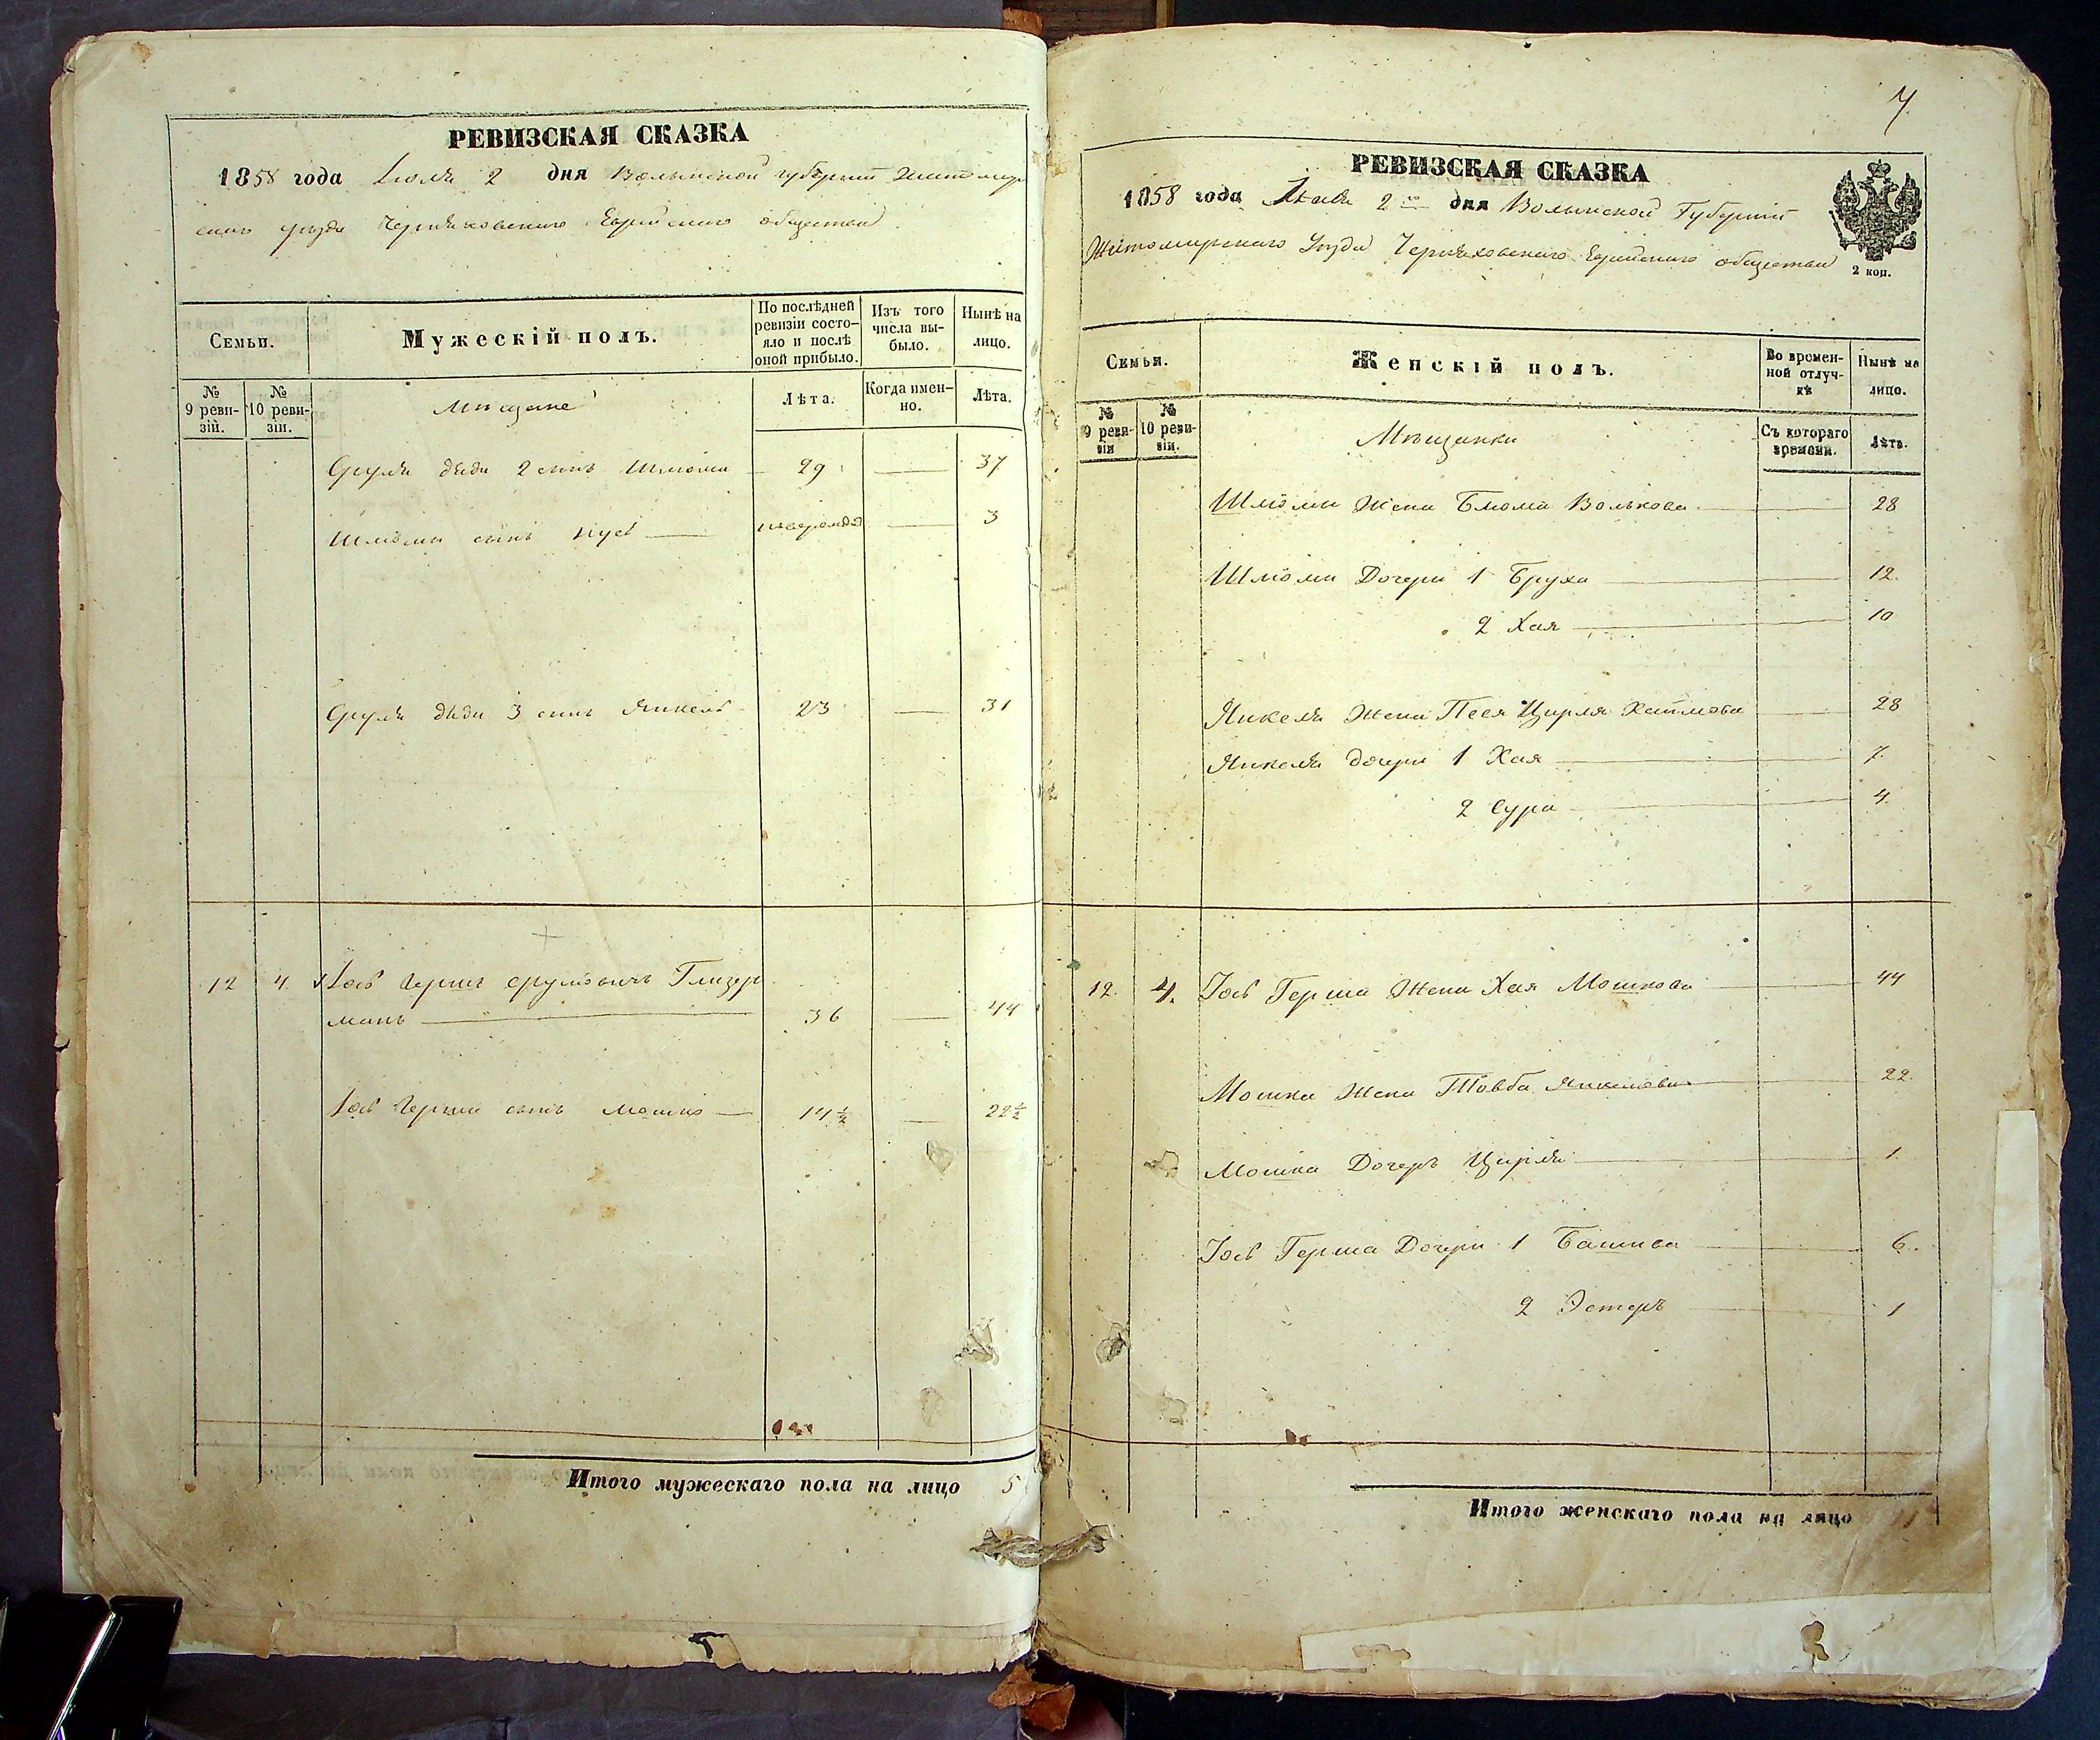 РЕВИЗСКАЯ СКАЗКА
1858 года Іюля 2 дня Волынской губерніи Житомир
скаго уѣзда Черняховскаго Еврейскаго общества
Семьи.
Мужескій полъ.
По послѣдней
ревизіи состо-
яло и послѣ
оной прибыло.
Изъ того
числа вы-
было.
Нынѣ на
лицо.
№
9 реви-
зій.
№
10 реви-
зіи.
Мѣщане
Лѣта.
Когда имен-
но.
Лѣта.
Сруля дяди 2 сынъ Шлиома 29 37
Шлиомы сынъ 3
Сруля дяди 3 сынъ Янкель 23 31
12 4 Іосъ Гершъ Срулiовичъ Глизер
манъ 36 44
Іосъ Герша сынъ Мошко 14½ 22½
Итого мужескаго пола на лицо 5
7.
РЕВИЗСКАЯ СКАЗКА
1858 года Іюля 2го дня Волынской Губерніи
Житомирскаго Уѣзда Черняховскаго Еврейскаго общества
2 коп.
Семьи.
Женскій полъ.
Во времен-
ной отлуч-
кѣ
Нынѣ на
лицо.
№
9 реви-
зіи
№
10 реви-
зіи.
Мѣщанки
Съ котораго
времени.
Лѣта.
Шлиомы Жена Блюма Волькова 28
Шлиомы Дочери 1 Бруха 12.
2 Хая 10
Янкеля Жена Песя Цирля Хаимова 28
Янкеля дочери 1 Хая 7.
2 Сура 4.
12. 4. Іосъ Герша Жена Хая Мошкова 44
Мошка Жена Товба Янкелiова 22.
Мошка Дочерь Цирля 1.
Іосъ Герша Дочери 1 Башива 6.
2 Эстеръ 1
Итого женскаго пола на лицо 11